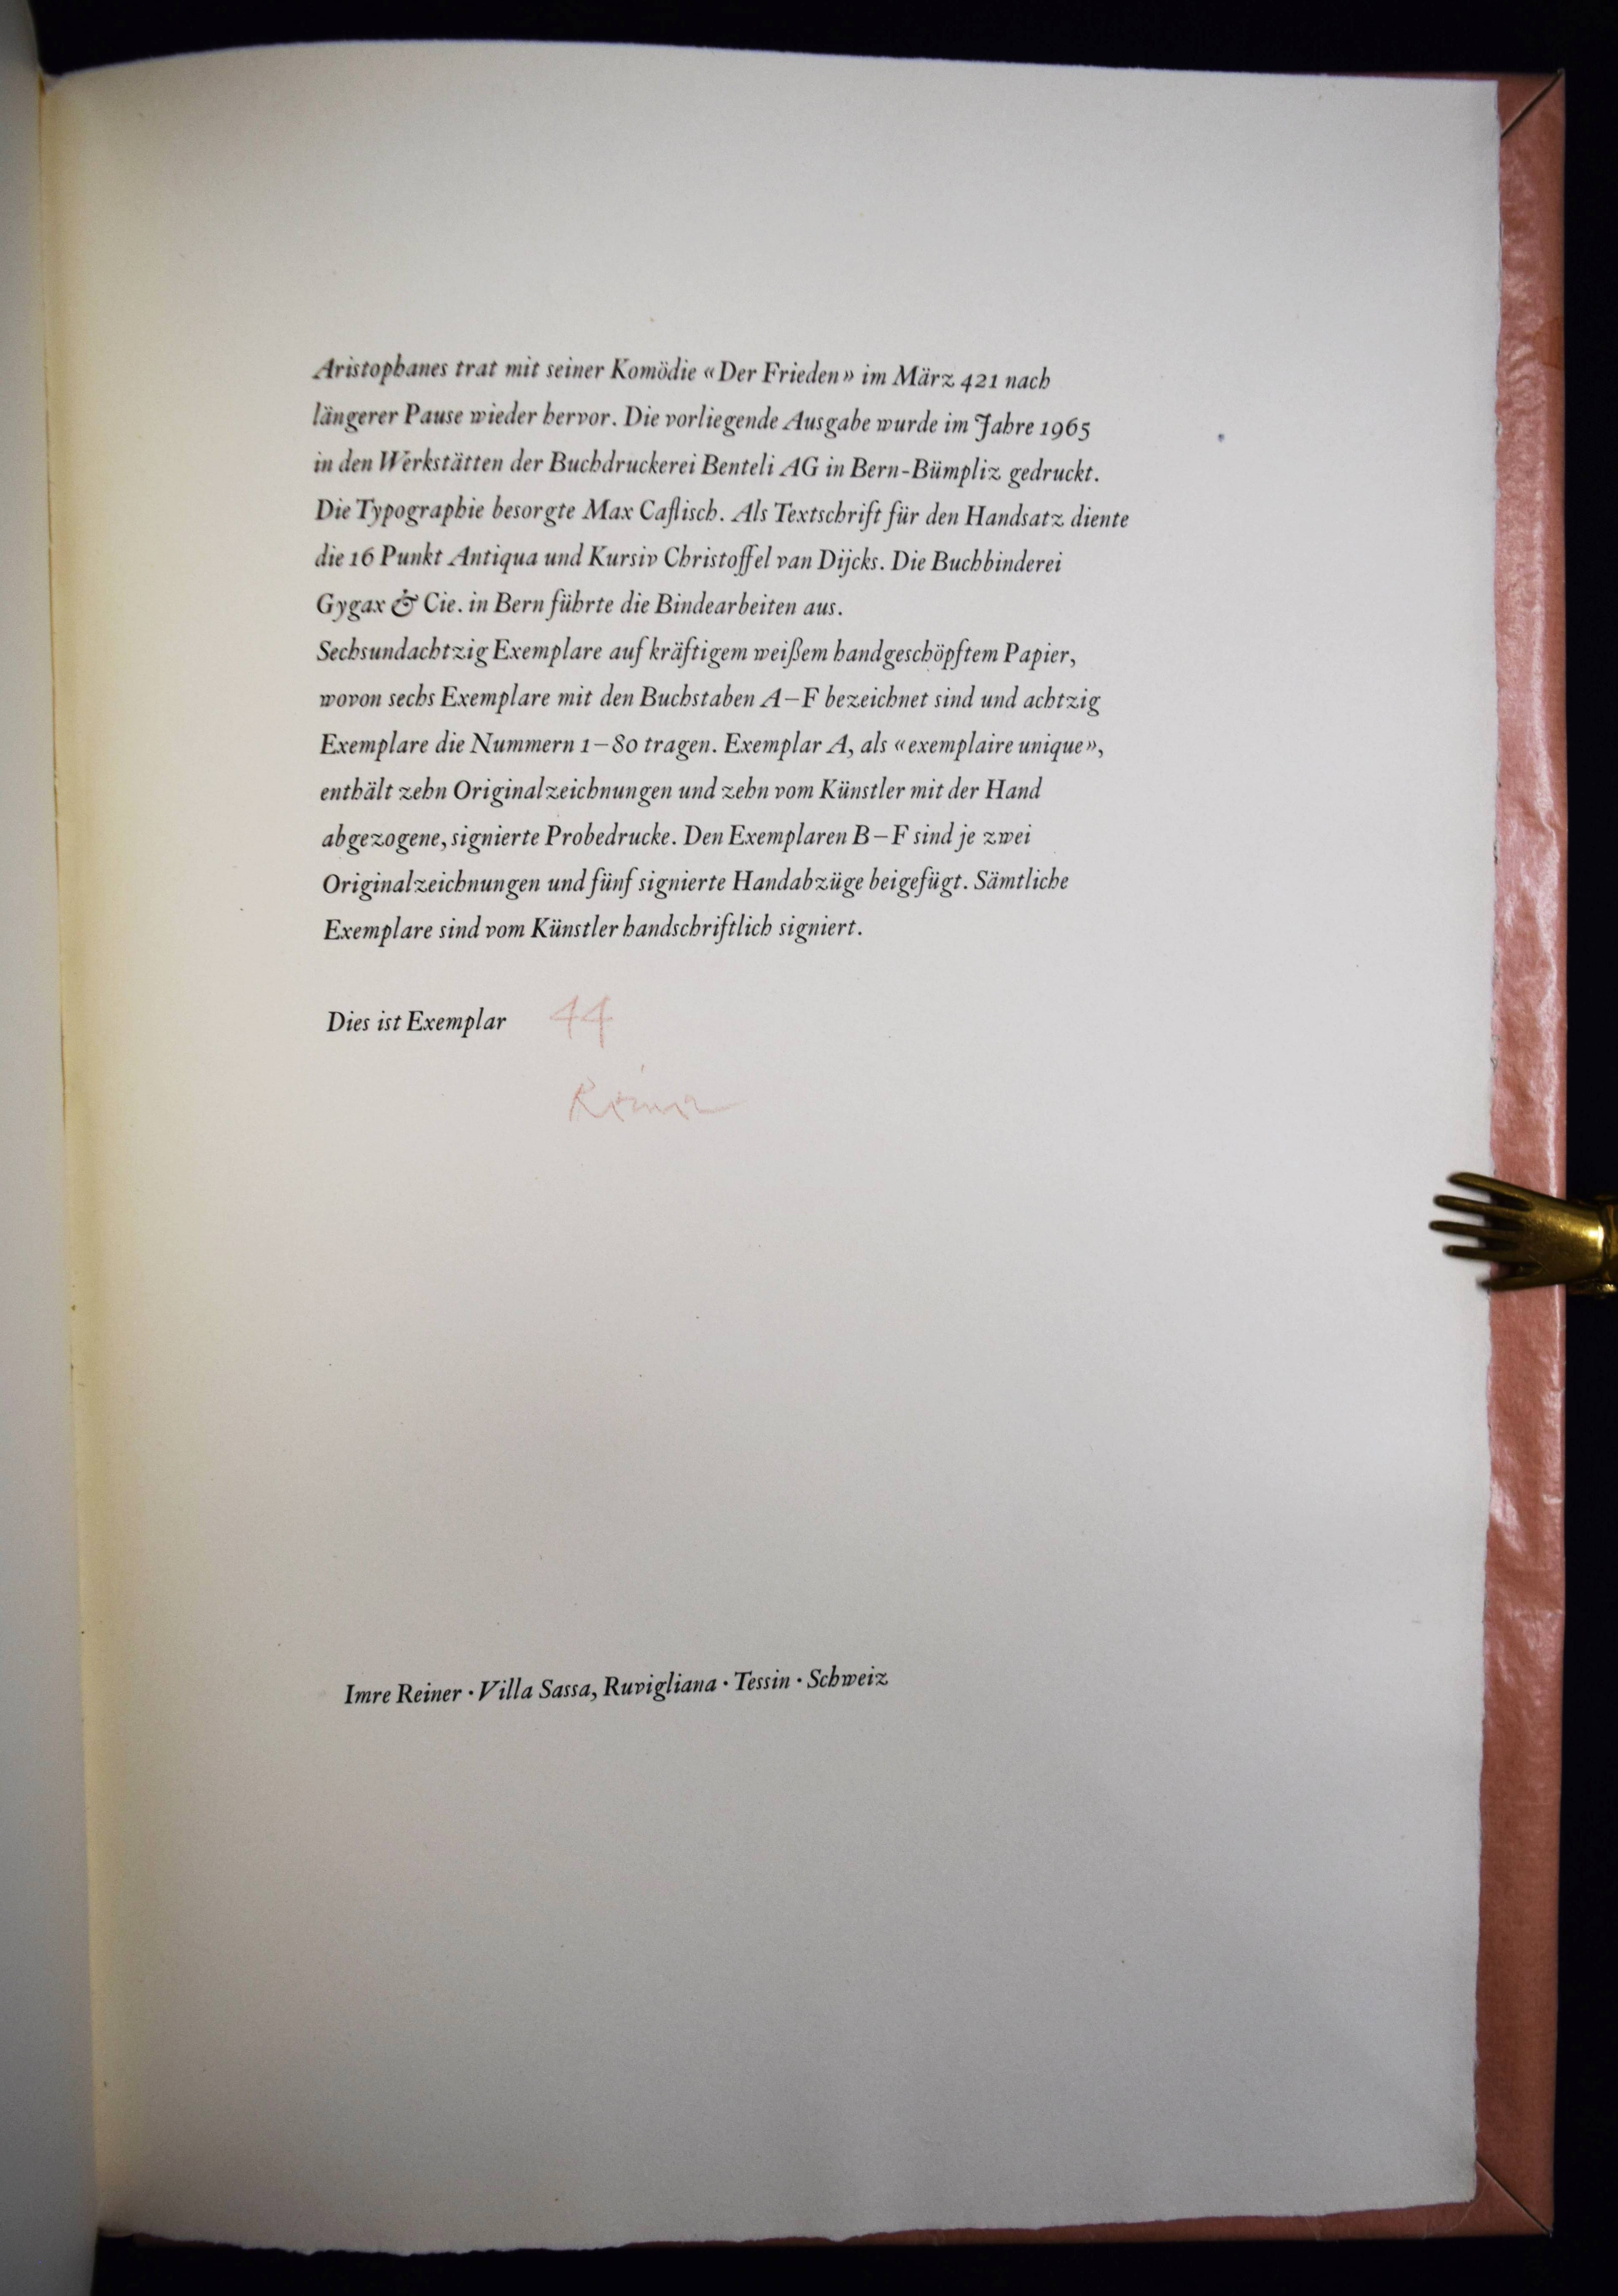 Aristophanes trat mit seiner Komödie «Der Frieden» im März 421 nach
längerer Pause wieder hervor. Die vorliegende Ausgabe wurde im Jahre 1965
in den Werkstätten der Buchdruckerei Benteli AG in Bern-Bümpliz gedruckt.
Die Typographie besorgte Max Caflisch. Als Textschrift für den Handsatz diente
die 16 Punkt Antiqua und Kursiv Christoffel van Dijcks. Die Buchbinderei
Gygax & Cie. in Bern führte die Bindearbeiten aus.
Sechsundachtzig Exemplare auf kräftigem weißem handgeschöpftem Papier,
wovon sechs Exemplare mit den Buchstaben A–F bezeichnet sind und achtzig
Exemplare die Nummern 1–80 tragen. Exemplar A, als «exemplaire unique»,
enthält zehn Originalzeichnungen und zehn vom Künstler mit der Hand
abgezogene, signierte Probedrucke. Den Exemplaren B–F sind je zwei
Originalzeichnungen und fünf signierte Handabzüge beigefügt. Sämtliche
Exemplare sind vom Künstler handschriftlich signiert.
Dies ist Exemplar 44
Reiner
Imre Reiner · Villa Sassa, Ruvigliana · Tessin · Schweiz